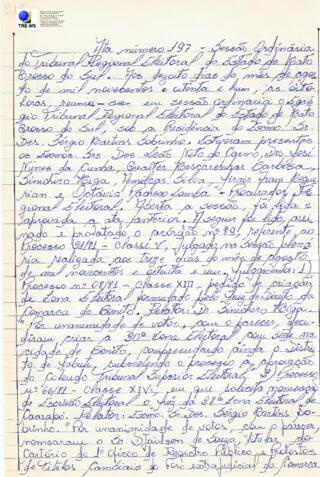 TRE-MS
Ata número 197 - Sessão Ordinária
do Tribunal Regional Eleitoral do Estado de Mato
Grosso do Sul. Aos dezoito dias do mês de agos
to de mil novecentos e oitenta e hum, às oito
horas, reuniu-se em sessão ordinária o Egré
gio Tribunal Regional Eleitoral do Estado de Mato
Grosso do Sul, sob a Presidência do Exmo. Sr.
Des. Sérgio Martins Sobrinho. Estiveram presentes
os Exmos. Srs. Des. Leão Neto do Carmo, Drs. José
Nunes da Cunha, Gualter Mascarenhas Barbosa,
Shinchiro Higa, Amilcar Silva
rian e Otávio Pacheco Lomba - Procurador Re
gional Eleitoral. Aberta a sessão, foi lida e
aprovada a ata anterior. A seguir foi lido, assi
nado e protestado o acórdão nº 89, referente ao
Processo 52/81 - Classe V, julgado na Sessão plená
ria realizada aos treze dias do mês de agosto
de mil novecentos e oitenta e um. Julgamentos: 1)
Processo nº 08/81 - Classe XIII, pedido de criação
de Zona Eleitoral formulado pelo Juiz de Direito da
Comarca de Bonito. Relator: Dr. Shinchiro Higa.
"Por unanimidade de votos, com o parecer, deci
diram criar a 30ª Zona Eleitoral com sede na
cidade de Bonito, compreendendo ainda o Distri
to de submetendo o processo à aprovação
do Colendo Tribunal Superior Eleitoral. 2) Processo
nº 66/81 - Classe XIV, em que solicita nomeação
de Escrivão Eleitoral o Juiz da 28ª Zona Eleitoral de
Caarapó. Relator: Exmo. Sr. Des. Sérgio Martins So
brinho. "Por unanimidade de votos, com o parecer,
nomearam o Sr. de Souza, titular do
Cartório do 1º Ofício de Registro Público e Protestos
de Títulos Cambiais do Foro extrajudicial da Comarca